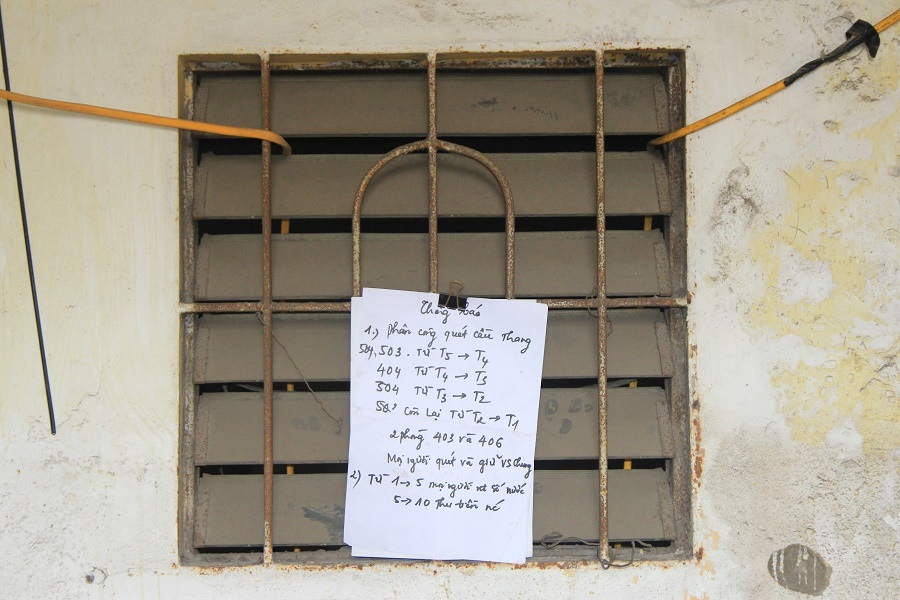 Thông báo
1.) Phân công quét cầu thang
504, 503. Từ T5 → T4
404 Từ T4 → T3
304 Từ T3 → T2
còn lại Từ T2 → T1
2 phòng 403 và 406
Mọi người quét và giữ VS chung
2) Từ 1 → 5 mọi người số nước
5 → 10 thu tiền